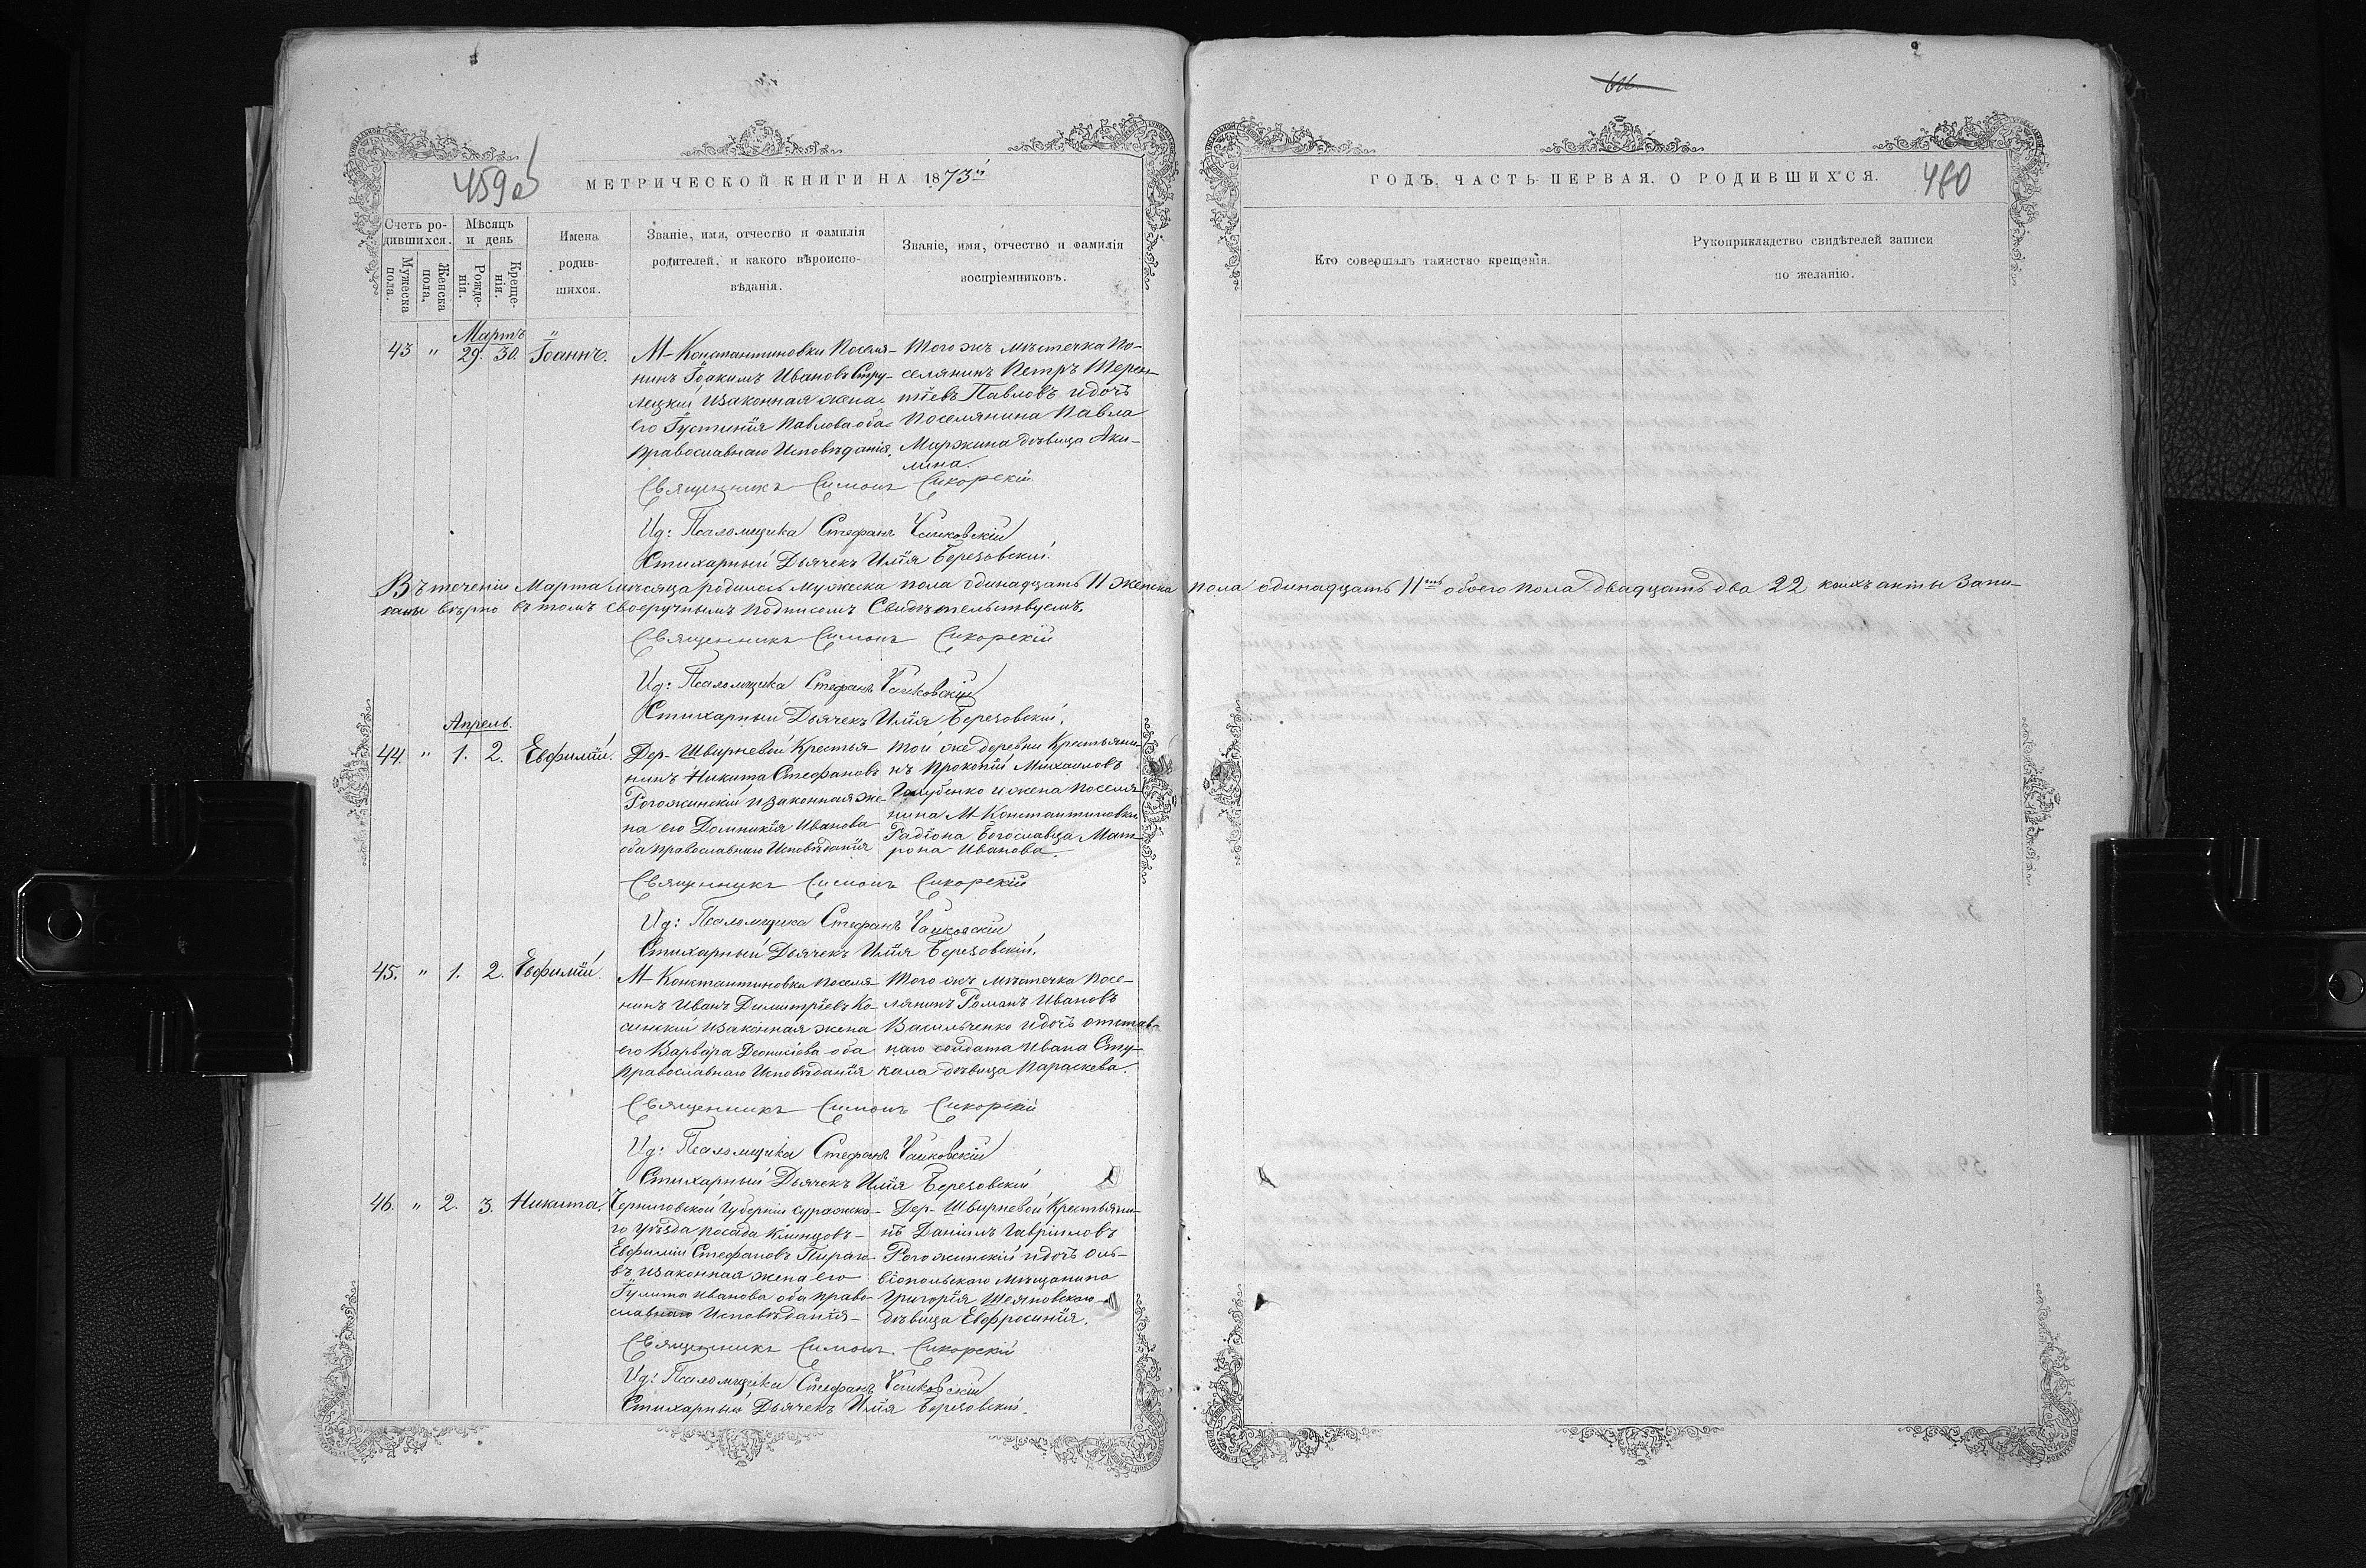 459об
МЕТРИЧЕСКОЙ КНИГИ НА 1873й
Счетъ родившихся.
Мужеска пола.
Женска пола.
Мѣсяцъ и день
Рожденія.
Крещенія.
Имена родившихся.
Званіе, имя, отчество и фамилія
родителей, и какого вѣроиспо-
вѣданія.
Званіе, имя, отчество и фамилія
воспріемниковъ.
Мартъ
43 " 29. 30. Іоаннъ.
М- Константиновки Поселя-
нинъ Іоакимъ Ивановъ Стру-
лецкій изаконная жена
его Іустинія Павлова оба
православнаго Исповѣданія.
Того жъ мѣстечка По-
селянинъ Петръ Терен-
тіевъ Павловъ идочь
Поселянина Павла
Маржина дѣвица Аки-
лина.
Священникъ Симонъ Сикорскій
Ид: Псаломщика Стефанъ Чайковскій
Стихарный Дьячекъ Илія Березовскій.
Въ теченіи Марта мѣсяца родилось мужеска пола одинадцать 11 женска пола одинадцать 11ть обоего пола двадцать два 22 коихъ акты Запи-
саны вѣрно въ томъ своеручнымъ подписомъ Свидѣтельствуемъ.
Священникъ Симонъ Сикорскій
Ид: Псаломщика Стефанъ Чайковскій
Стихарный Дьячекъ Илія Березовскій.
Апрель.
44. " 1. 2. Евфимій.
Дер- Швырневой Крестья-
нинъ Никита Стефановъ
Рогожинскій изаконная же-
на его Домникія Иванова
оба православнаго Исповѣданія
Той же деревни Крестьяни-
нъ Прокопій Михайловъ
Голубенко ижена поселя
нина М- Константиновки
Радіона Богославца Мат-
рона Иванова.
Священникъ Симонъ Сикорскій
Ид: Псаломщика Стефанъ Чайковскій
Стихарный Дьячекъ Илія Березовскій.
45. " 1. 2. Евфимій.
М- Константиновки поселя
нинъ Иванъ Димитріевъ Ко-
синскій изаконная жена
его Варвара Деонисіева оба
православнаго Исповѣданія
Того жъ мѣстечка посе-
лянинъ Романъ Ивановъ
Васильченко идочь отстав-
наго солдата Ивана Сту-
кала дѣвица Параскева.
Священникъ Симонъ Сикорскій
Ид: Псаломщика Стефанъ Чайковскій
Стихарный Дьячекъ Илія Березовскій
46. " 2. 3. Никита.
Черниговской Губерніи суражска-
го уѣзда посада Клинцовъ-
Евфимій Стефановъ Пираго-
въ изаконная жена его
Іулита Иванова оба право-
славнаго Исповѣданія-
Дер- Швырневой Крестьяни-
нъ Даніилъ Гавріиловъ
Рогожинскій идочь оль-
віопольскаго мѣщанина
Григорія Шеяновскаго
дѣвица Евфросинія.
Священникъ Симонъ Сикорскій
Ид: Псаломщика Стефанъ Чайковскій
Стихарный Дьячекъ Илія Березовскій.
ГОДЪ, ЧАСТЬ ПЕРВАЯ, О РОДИВШИХСЯ.
460
Кто совершалъ таинство крещенія.
Рукоприкладство свидѣтелей записи
по желанію.